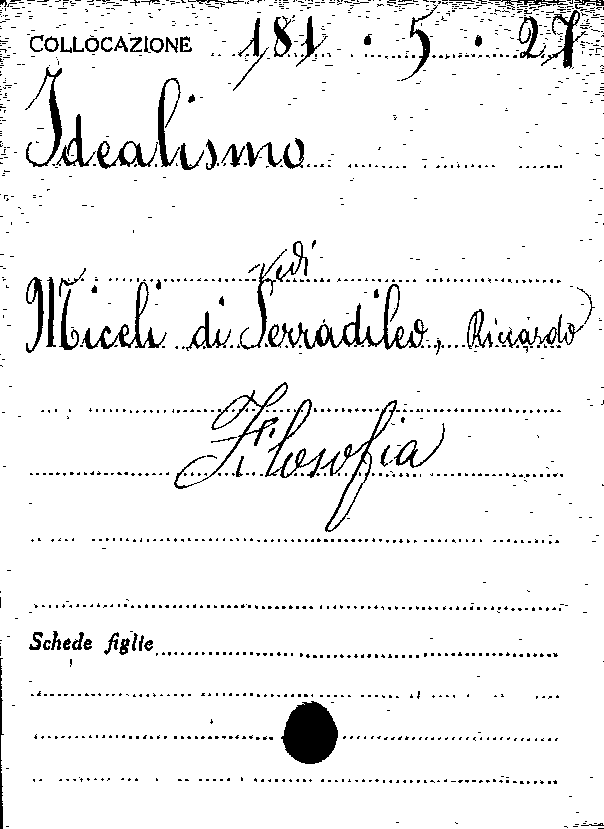 COLLOCAZIONE 181 . 5 . 27
Idealismo
vedi
Miceli di Serradileo, Riccardo
Filosofia
Schede figlie